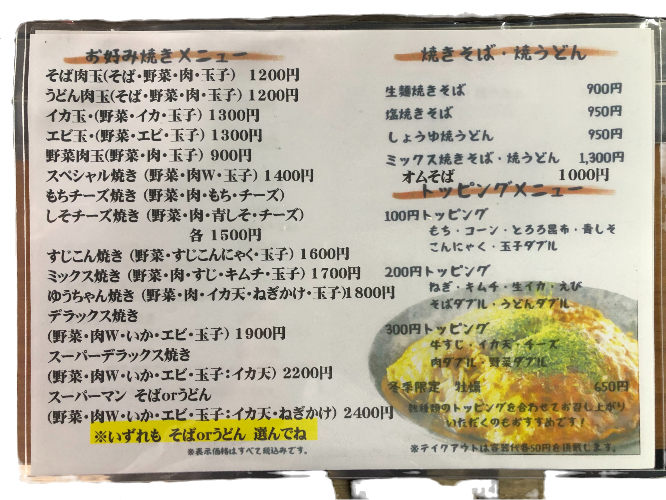 お好み焼きメニュー
そば肉玉(そば・野菜・肉・玉子) 1200円
うどん肉玉(そば・野菜・肉・玉子) 1200円
イカ玉・(野菜・イカ・玉子) 1300円
エビ玉・(野菜・エビ・玉子) 1300円
野菜肉玉(野菜・肉・玉子) 900円
スペシャル焼き (野菜・肉W・玉子) 1400円
もちチーズ焼き (野菜・肉・もち・チーズ)
しそチーズ焼き (野菜・肉・青しそ・チーズ)
各 1500円
すじこん焼き (野菜・すじこんにゃく・玉子) 1600円
ミックス焼き (野菜・肉・すじ・キムチ・玉子) 1700円
ゆうちゃん焼き (野菜・肉・イカ天・ねぎかけ・玉子)1800円
デラックス焼き
(野菜・肉W・いか・エビ・玉子) 1900円
スーパーデラックス焼き
(野菜・肉W・いか・エビ・玉子:イカ天) 2200円
スーパーマン そばorうどん
(野菜・肉W・いか・エビ・玉子:イカ天・ねぎかけ) 2400円
※いずれも そばorうどん 選んでね
※表示価格はすべて税込みです。
焼きそば・焼うどん
生麺焼きそば 900円
塩焼きそば 950円
しょうゆ焼うどん 950円
ミックス焼きそば・焼うどん 1,300円
オムそば 1000円
トッピングメニュー
100円トッピング
もち・コーン・とろろ昆布・青しそ
こんにゃく・玉子ダブル
200円トッピング
ねぎ・キムチ・生イカ・えび
そばダブル・うどんダブル
300円トッピング
牛すじ・イカ天・チーズ
肉ダブル・野菜ダブル
冬季限定 牡蠣 650円
数種類のトッピングを合わせてお召し上がり
いただくのもおすすめです!
※テイクアウトは容器代各50円を頂戴します。